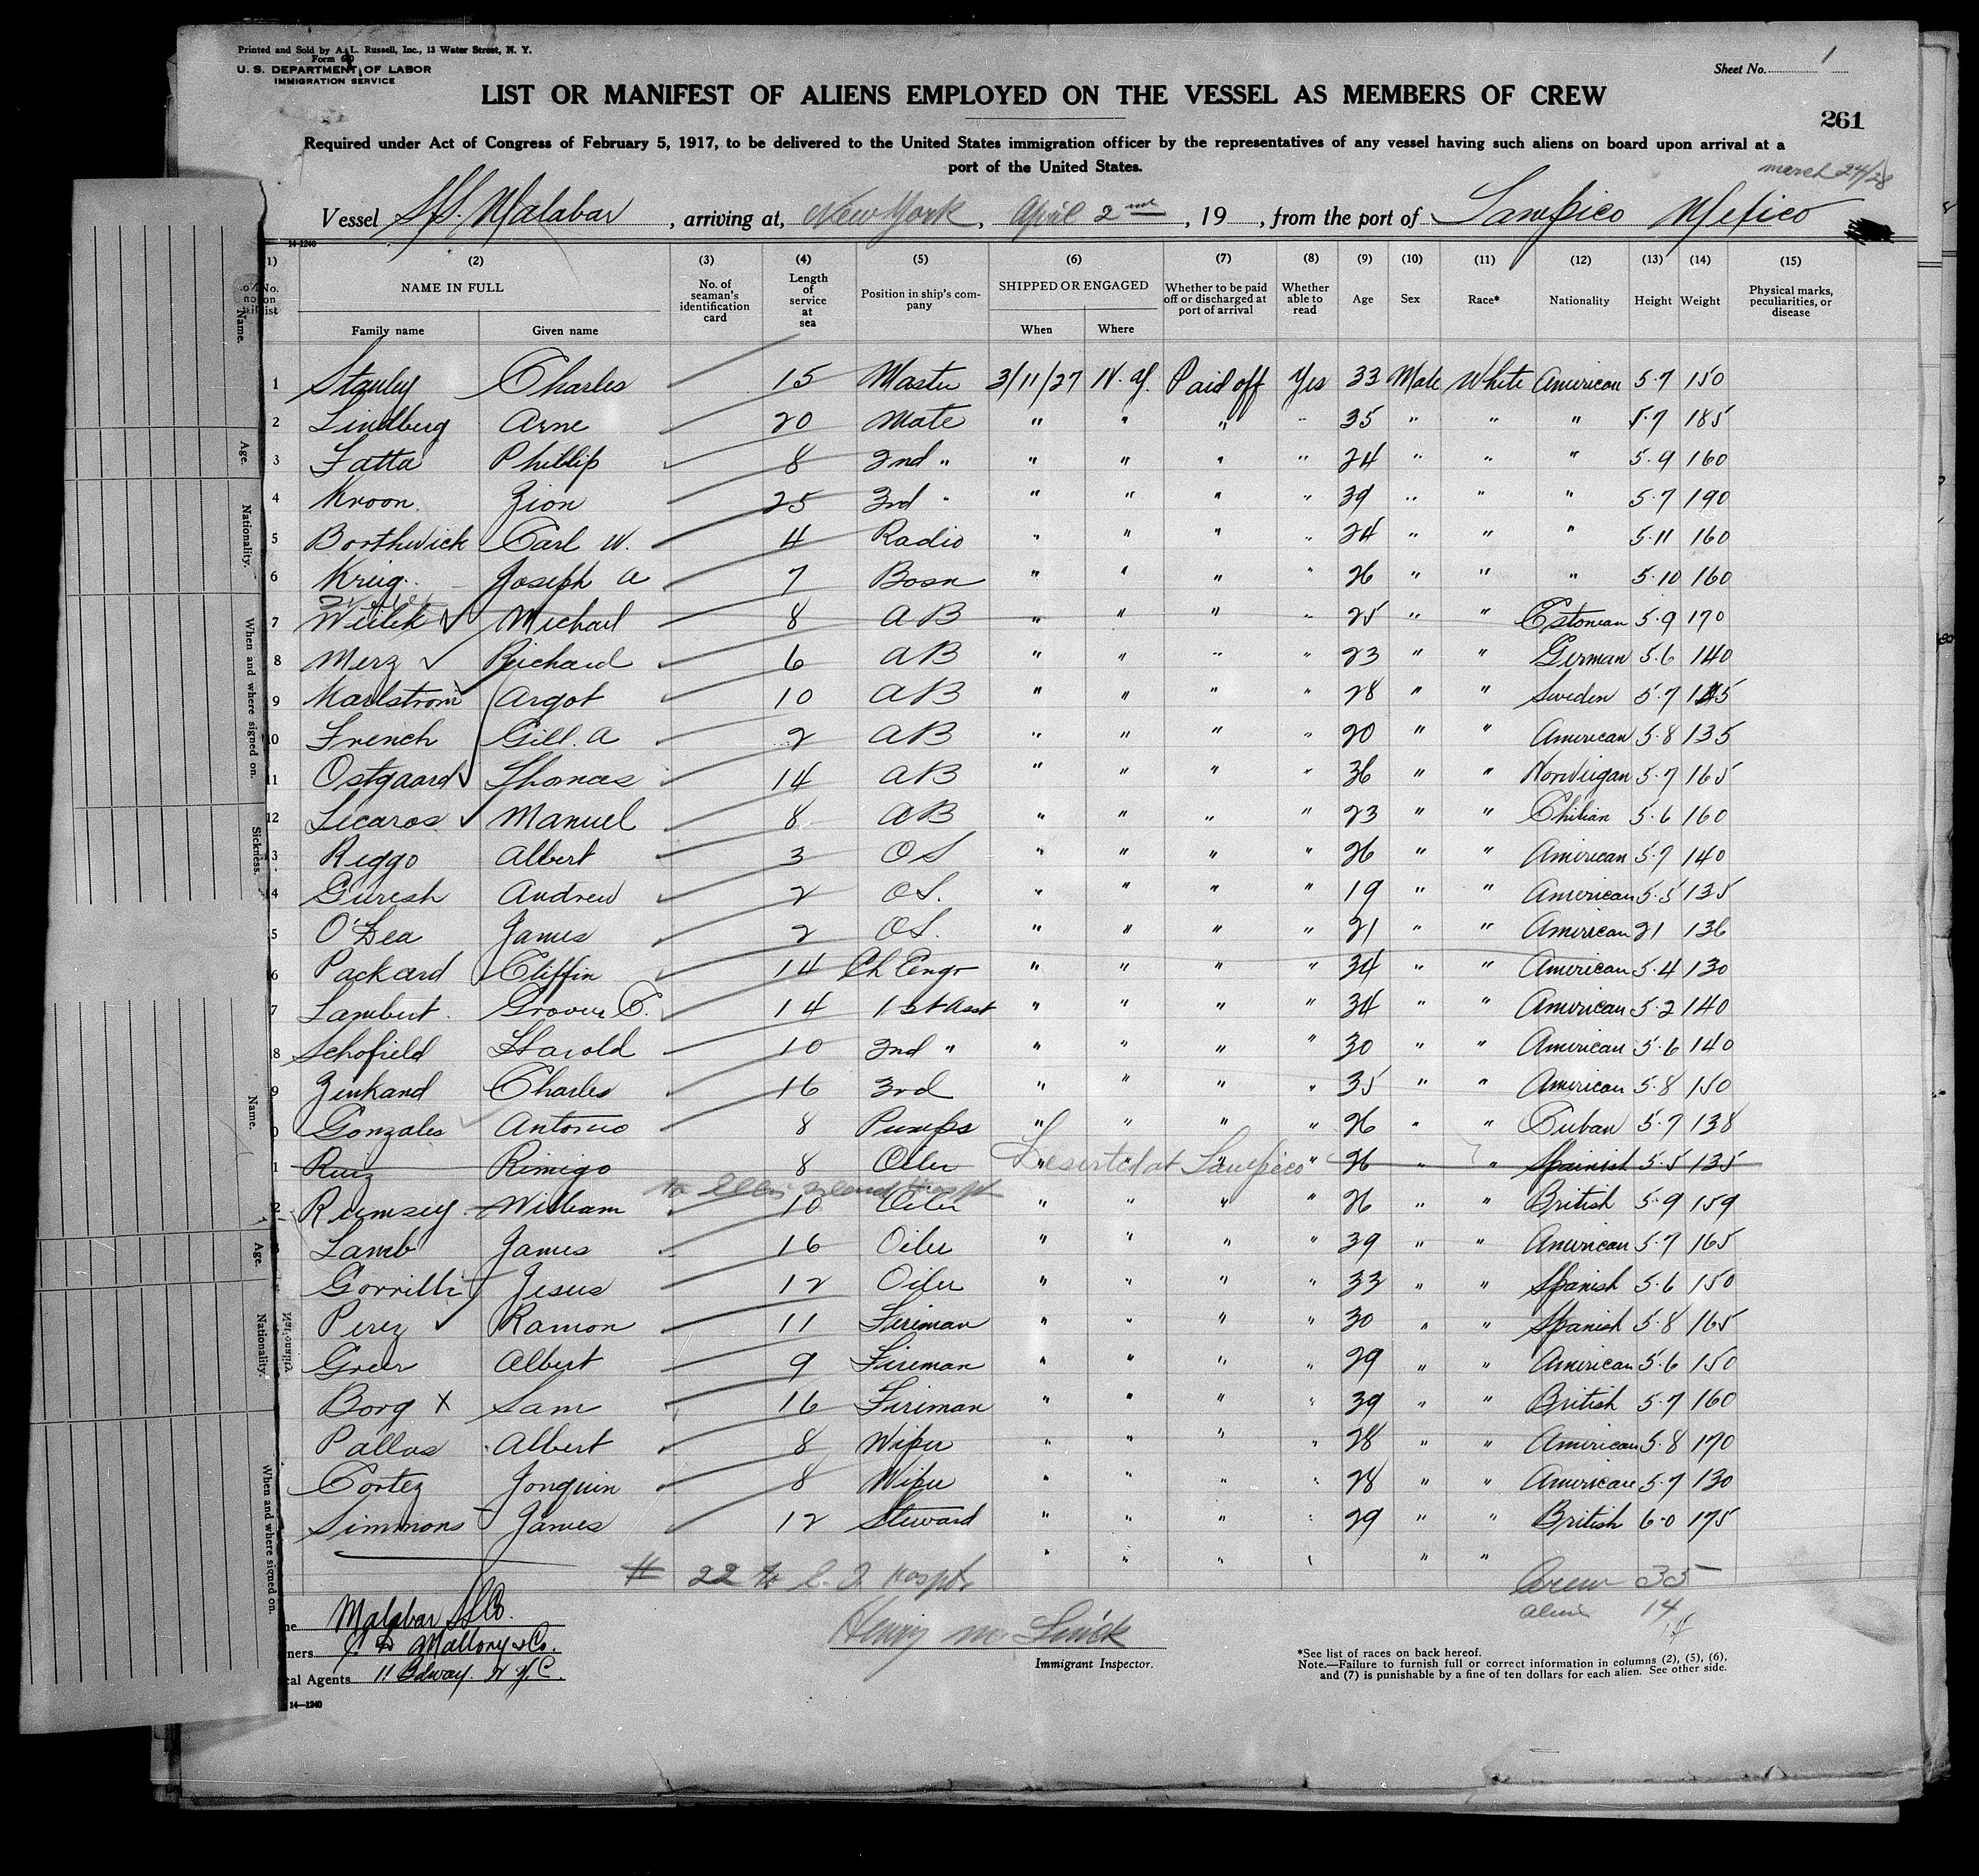 Printed and Sold by A. L. Russell, Inc., 13 Water Street, N. Y.
Form 680
U. S. DEPARTMENT OF LABOR
IMMIGRATION SERVICE
Sheet No. 1
LIST OR MANIFEST OF ALIENS EMPLOYED ON THE VESSEL AS MEMBERS OF CREW
261
Required under Act of Congress of February 5, 1917, to be delivered to the United States immigration officer by the representatives of any vessel having such aliens on board upon arrival at a
port of the United States.
march 24/28
Vessel S/S. Malabar, arriving at, New York, April 2nd, 19, from the port of Tampico Mexico
14-1240
(1) (2) (3) (4) (5) (6) (7) (8) (9) (10) (11) (12) (13) (14) (15)
No. on list NAME IN FULL No. of seaman's identification card Length of service at sea Position in ship's company SHIPPED OR ENGAGED Whether to be paid off or discharged at port of arrival Whether able to read Age Sex Race* Nationality Height Weight Physical marks, peculiarities, or disease
Family name Given name When Where
1 Stanley Charles 15 Master 3/11/27 N. Y. Paid off Yes 33 Male White American 5.7 150
2 Lindberg Arne 20 Mate " " " " 35 " " " 5.7 185
3 Fatta Phillip 8 2nd " " " " " 24 " " " 5.9 160
4 Kroon Zion 25 3rd " " " " " 39 " " " 5.7 190
5 Borthwick Carl W. 4 Radio " " " " 24 " " " 5.11 160
6 Krug Joseph A 7 Bosn " " " " 26 " " " 5.10 160
7 Michael 8 AB " " " " 25 " " Estonian 5.9 170
8 Merz Richard 6 AB " " " " 23 " " German 5.6 140
9 Karlstrom Argot 10 AB " " " " 28 " " Sweden 5.7
10 French Gill. A 2 AB " " " " 20 " " American 5.8 135
11 Ostgaard Thomas 14 AB " " " " 36 " " Norwigan 5.7 165
12 Licaros Manuel 8 AB " " " " 23 " " Chilian 5.6 160
13 Riggo Albert 3 OS " " " " 26 " " American 5.7 140
14 Guresh Andrew 2 OS. " " " " 19 " " American 5.5 135
5 O'Dea James 2 OS. " " " " 21 " " American 21 136
6 Packard Cliffin 14 Ch Engr " " " " 34 " " American 5.4 130
7 Lambert Grover C. 14 1st Asst " " " " 34 " " American 5.2 140
8 Schofield Harold 10 2nd " " " " " 30 " " American 5.6 140
9 Zinkand Charles 16 3rd " " " " 35 " " American 5.8 150
0 Gonzales Antonio 8 Pumps " " " " 26 " " Cuban 5.7 138
1 Ruiz Rimigo 8 Oiler Deserted at Tampico 26 " " Spainish 5.5 135
to Ellis Island Hospt
2 Rumsey William 10 Oiler " " " " 26 " " British 5.9 159
3 Lamb James 16 Oiler " " " " 39 " " American 5.7 165
Gorrilli Jesus 12 Oiler " " " " 33 " " Spanish 5.6 150
Perez Ramon 11 Fireman " " " " 30 " " Spanish 5.8 165
Greer Albert 9 Fireman " " " " 29 " " American 5.6 150
Borg X Sam 16 Fireman " " " " 39 " " British 5.7 160
Pallas Albert 8 Wiper " " " " 28 " " American 5.8 170
Cortez Jonquin 8 Wiper " " " " 28 " " American 5.7 130
Simmons James 12 Steward " " " " 29 " " British 6.0 175
" " " " " "
# 22 to E. I. Hospt. Crew 35
Alien 14
Malabar SS Co.
C D Mallory & Co.
cal Agents 11 Bdway. N. Y. C.
Immigrant Inspector.
*See list of races on back hereof.
Note.—Failure to furnish full or correct information in columns (2), (5), (6),
and (7) is punishable by a fine of ten dollars for each alien. See other side.
14—1240
Name.
Age.
Nationality.
When and where signed on.
Sickness.
Name.
Age.
Nationality.
When and where signed on.